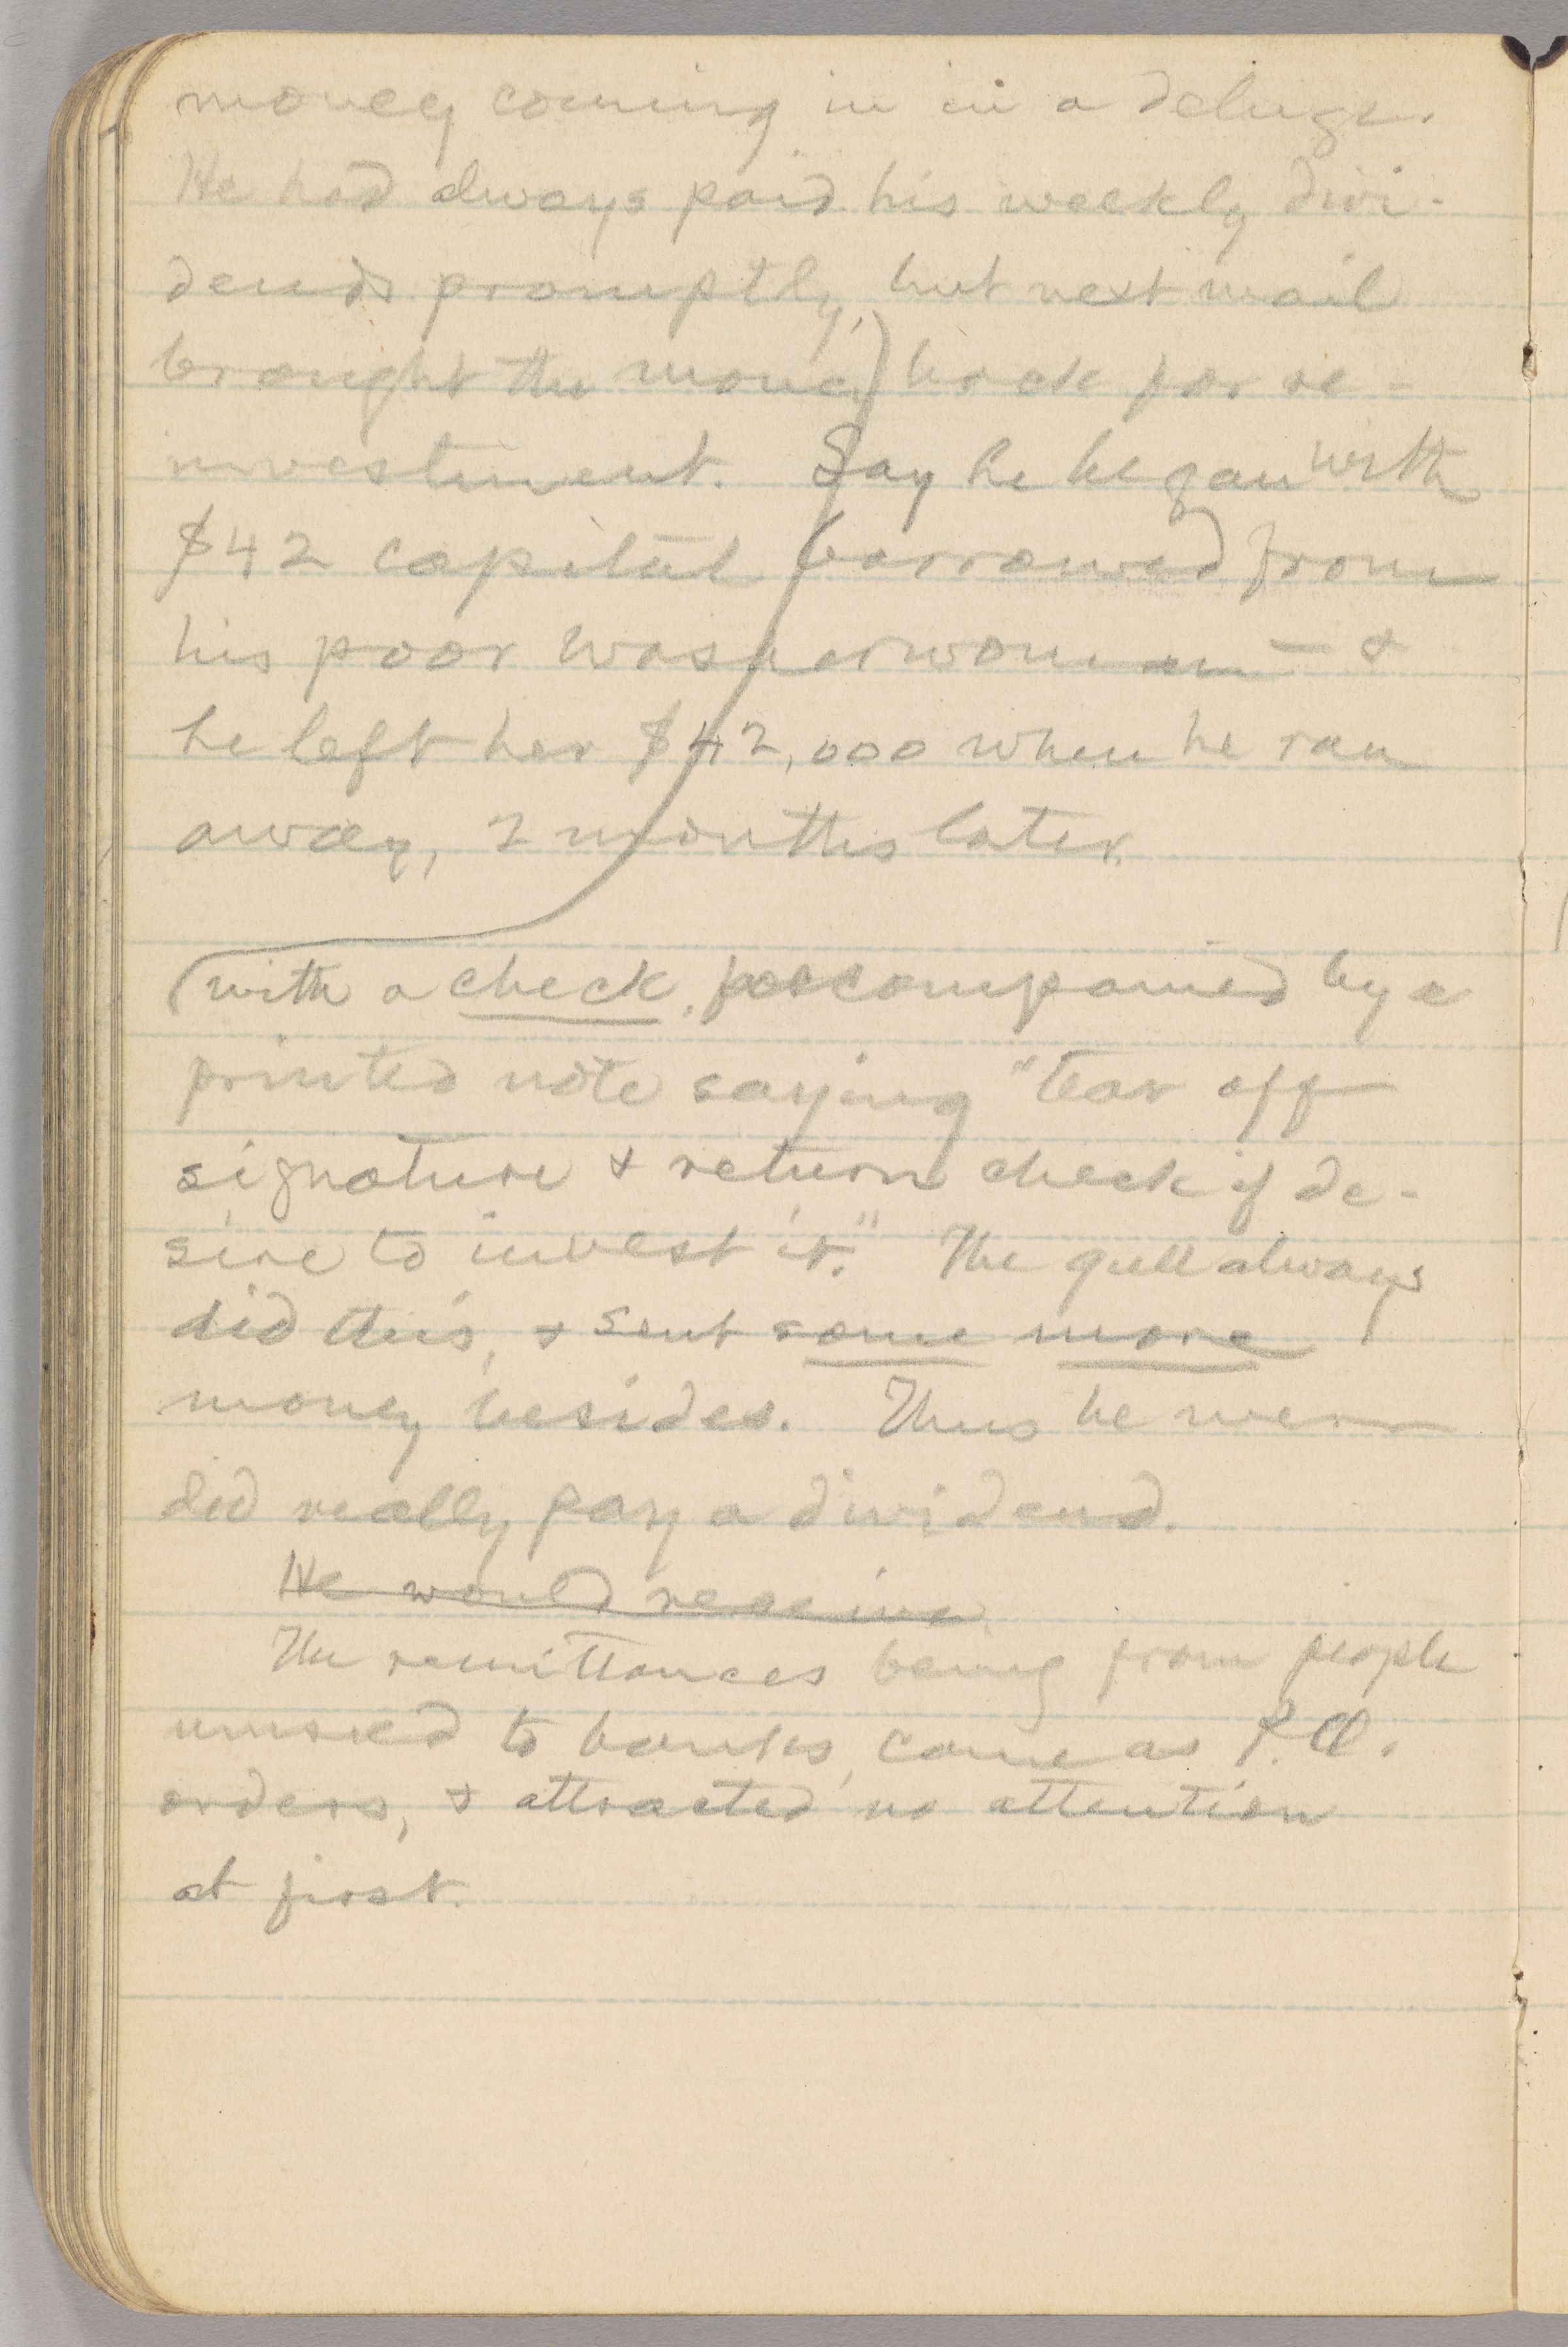 money coming in in a deluge.
He had always paid his weekly divi-
dends promptly, but next mail
brought the money back for re-
investment. Say he began with
$42 capital borrowed from
his poor washerwoman — &
he left her $42,000 when he ran
away, 2 months later.
(with a check, accompanied by a
printed note saying "tear off
signature & return check if de-
sire to invest it." The gull always
did this, & sent some more
money besides. Thus he never
did really pay a dividend.
He would receive
The remittances being from people
unused to banks, came as P.O.
orders, & attracted no attention
at first.